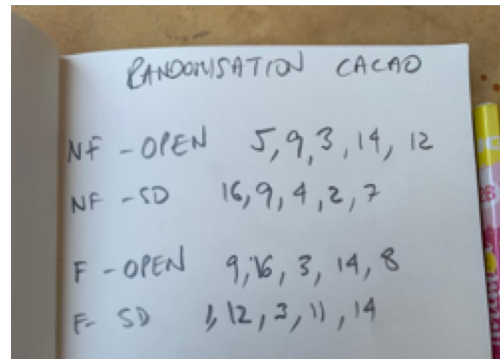 RANDOMISATION CACAO
NF - OPEN 5, 9, 3, 14, 12
NF - SD 16, 9, 4, 2, 7
F - OPEN 9, 16, 3, 14, 8
F - SD 1, 12, 3, 11, 14